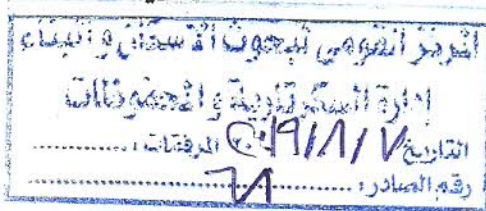 المركز القومى لبحوث الاسكان والبناء
إدارة السكرتارية والمحفوظات
التاريخ ٢٠١٩/١/٧ المرفقات : ..............
رقم الصادر : ..............